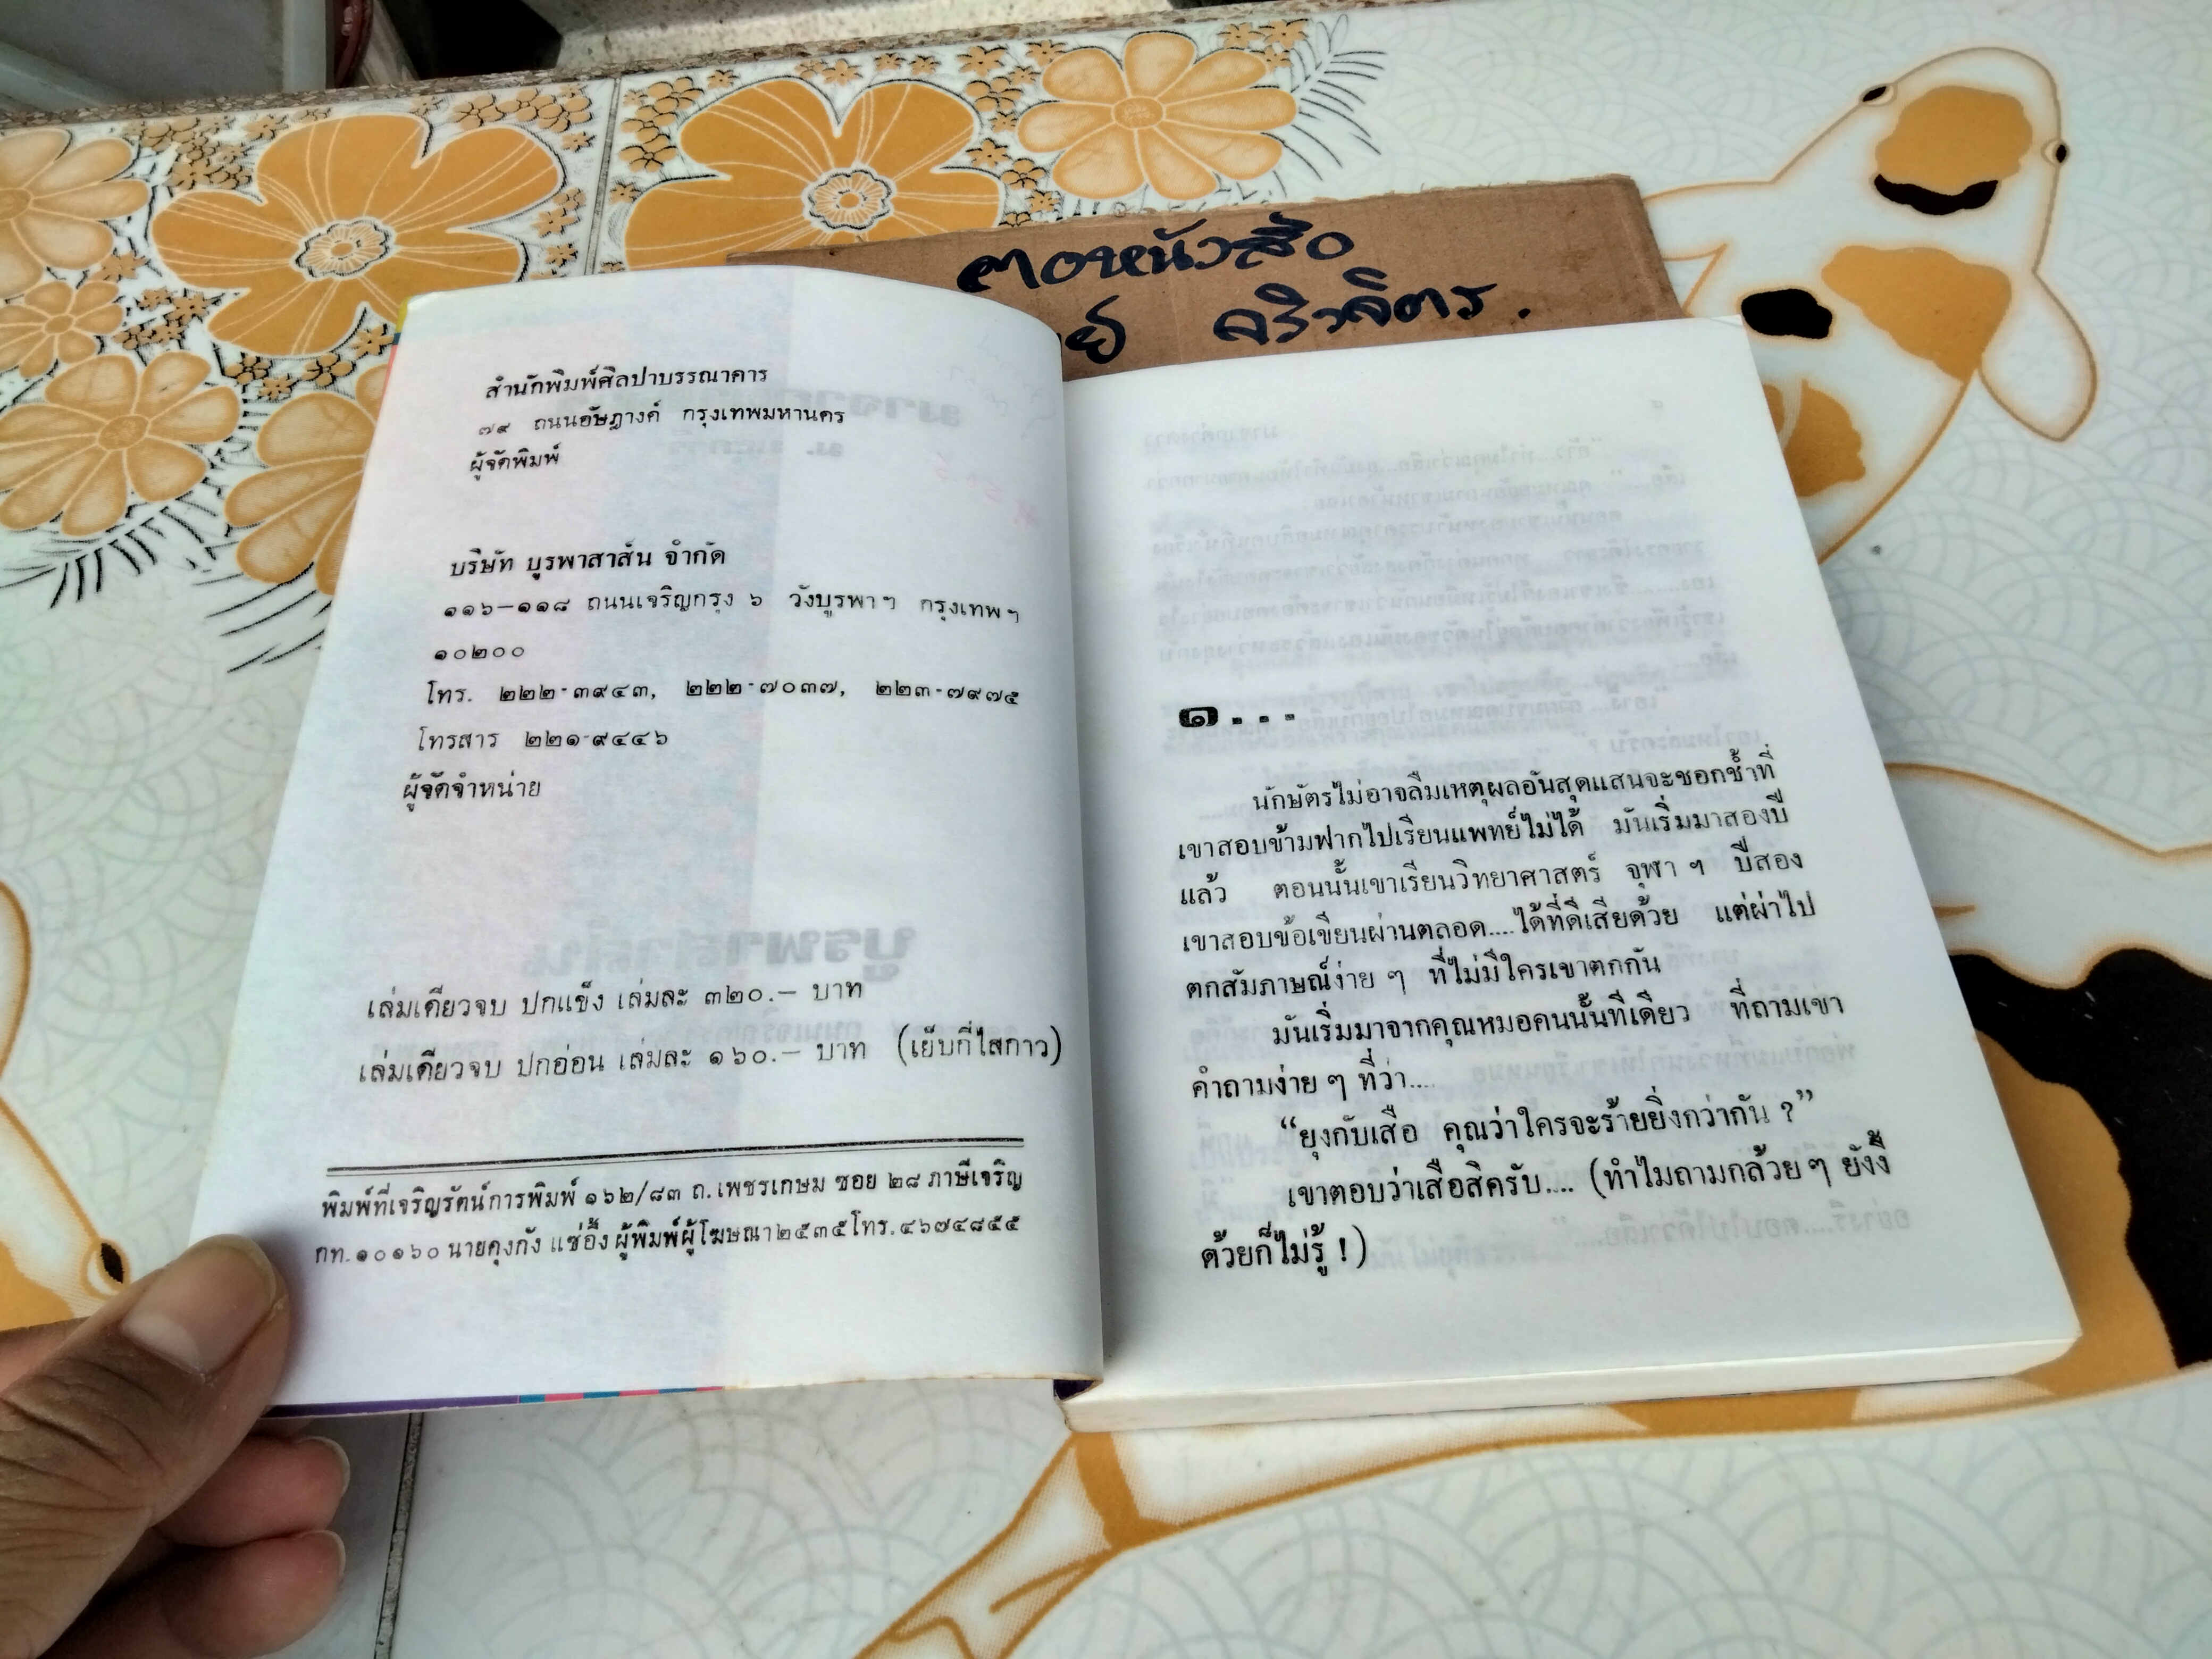 ฅอหนังสือ
ย์ ศรีวจิตร.
สำนักพิมพ์ศิลปาบรรณาคาร
๗๙ ถนนอัษฎางค์ กรุงเทพมหานคร
ผู้จัดพิมพ์
บริษัท บูรพาสาส์น จำกัด
๑๑๖–๑๑๘ ถนนเจริญกรุง ๖ วังบูรพา ฯ กรุงเทพ ฯ
๑๐๒๐๐
โทร. ๒๒๒-๓๙๔๓, ๒๒๒-๗๐๓๗, ๒๒๓-๗๙๗๕
โทรสาร ๒๒๑-๙๔๔๖
ผู้จัดจำหน่าย
เล่มเดียวจบ ปกแข็ง เล่มละ ๓๒๐.– บาท
เล่มเดียวจบ ปกอ่อน เล่มละ ๑๖๐.– บาท (เย็บกี่ไสกาว)
พิมพ์ที่เจริญรัตน์การพิมพ์ ๑๖๒/๘๓ ถ.เพชรเกษม ซอย ๒๘ ภาษีเจริญ
กท.๑๐๑๖๐ นายคุงกัง แซ่อึ้ง ผู้พิมพ์ผู้โฆษณา ๒๕๓๕ โทร.๔๖๗๔๘๕๕
๑...
นักษัตรไม่อาจลืมเหตุผลอันสุดแสนจะชอกช้ำที่
เขาสอบข้ามฟากไปเรียนแพทย์ไม่ได้ มันเริ่มมาสองปี
แล้ว ตอนนั้นเขาเรียนวิทยาศาสตร์ จุฬา ฯ ปีสอง
เขาสอบข้อเขียนผ่านตลอด....ได้ที่ดีเสียด้วย แต่ผ่าไป
ตกสัมภาษณ์ง่าย ๆ ที่ไม่มีใครเขาตกกัน
มันเริ่มมาจากคุณหมอคนนั้นทีเดียว ที่ถามเขา
คำถามง่าย ๆ ที่ว่า....
“ยุงกับเสือ คุณว่าใครจะร้ายยิ่งกว่ากัน ?”
เขาตอบว่าเสือสิครับ.... (ทำไมถามกล้วย ๆ ยังงี้
ด้วยก็ไม่รู้ !)